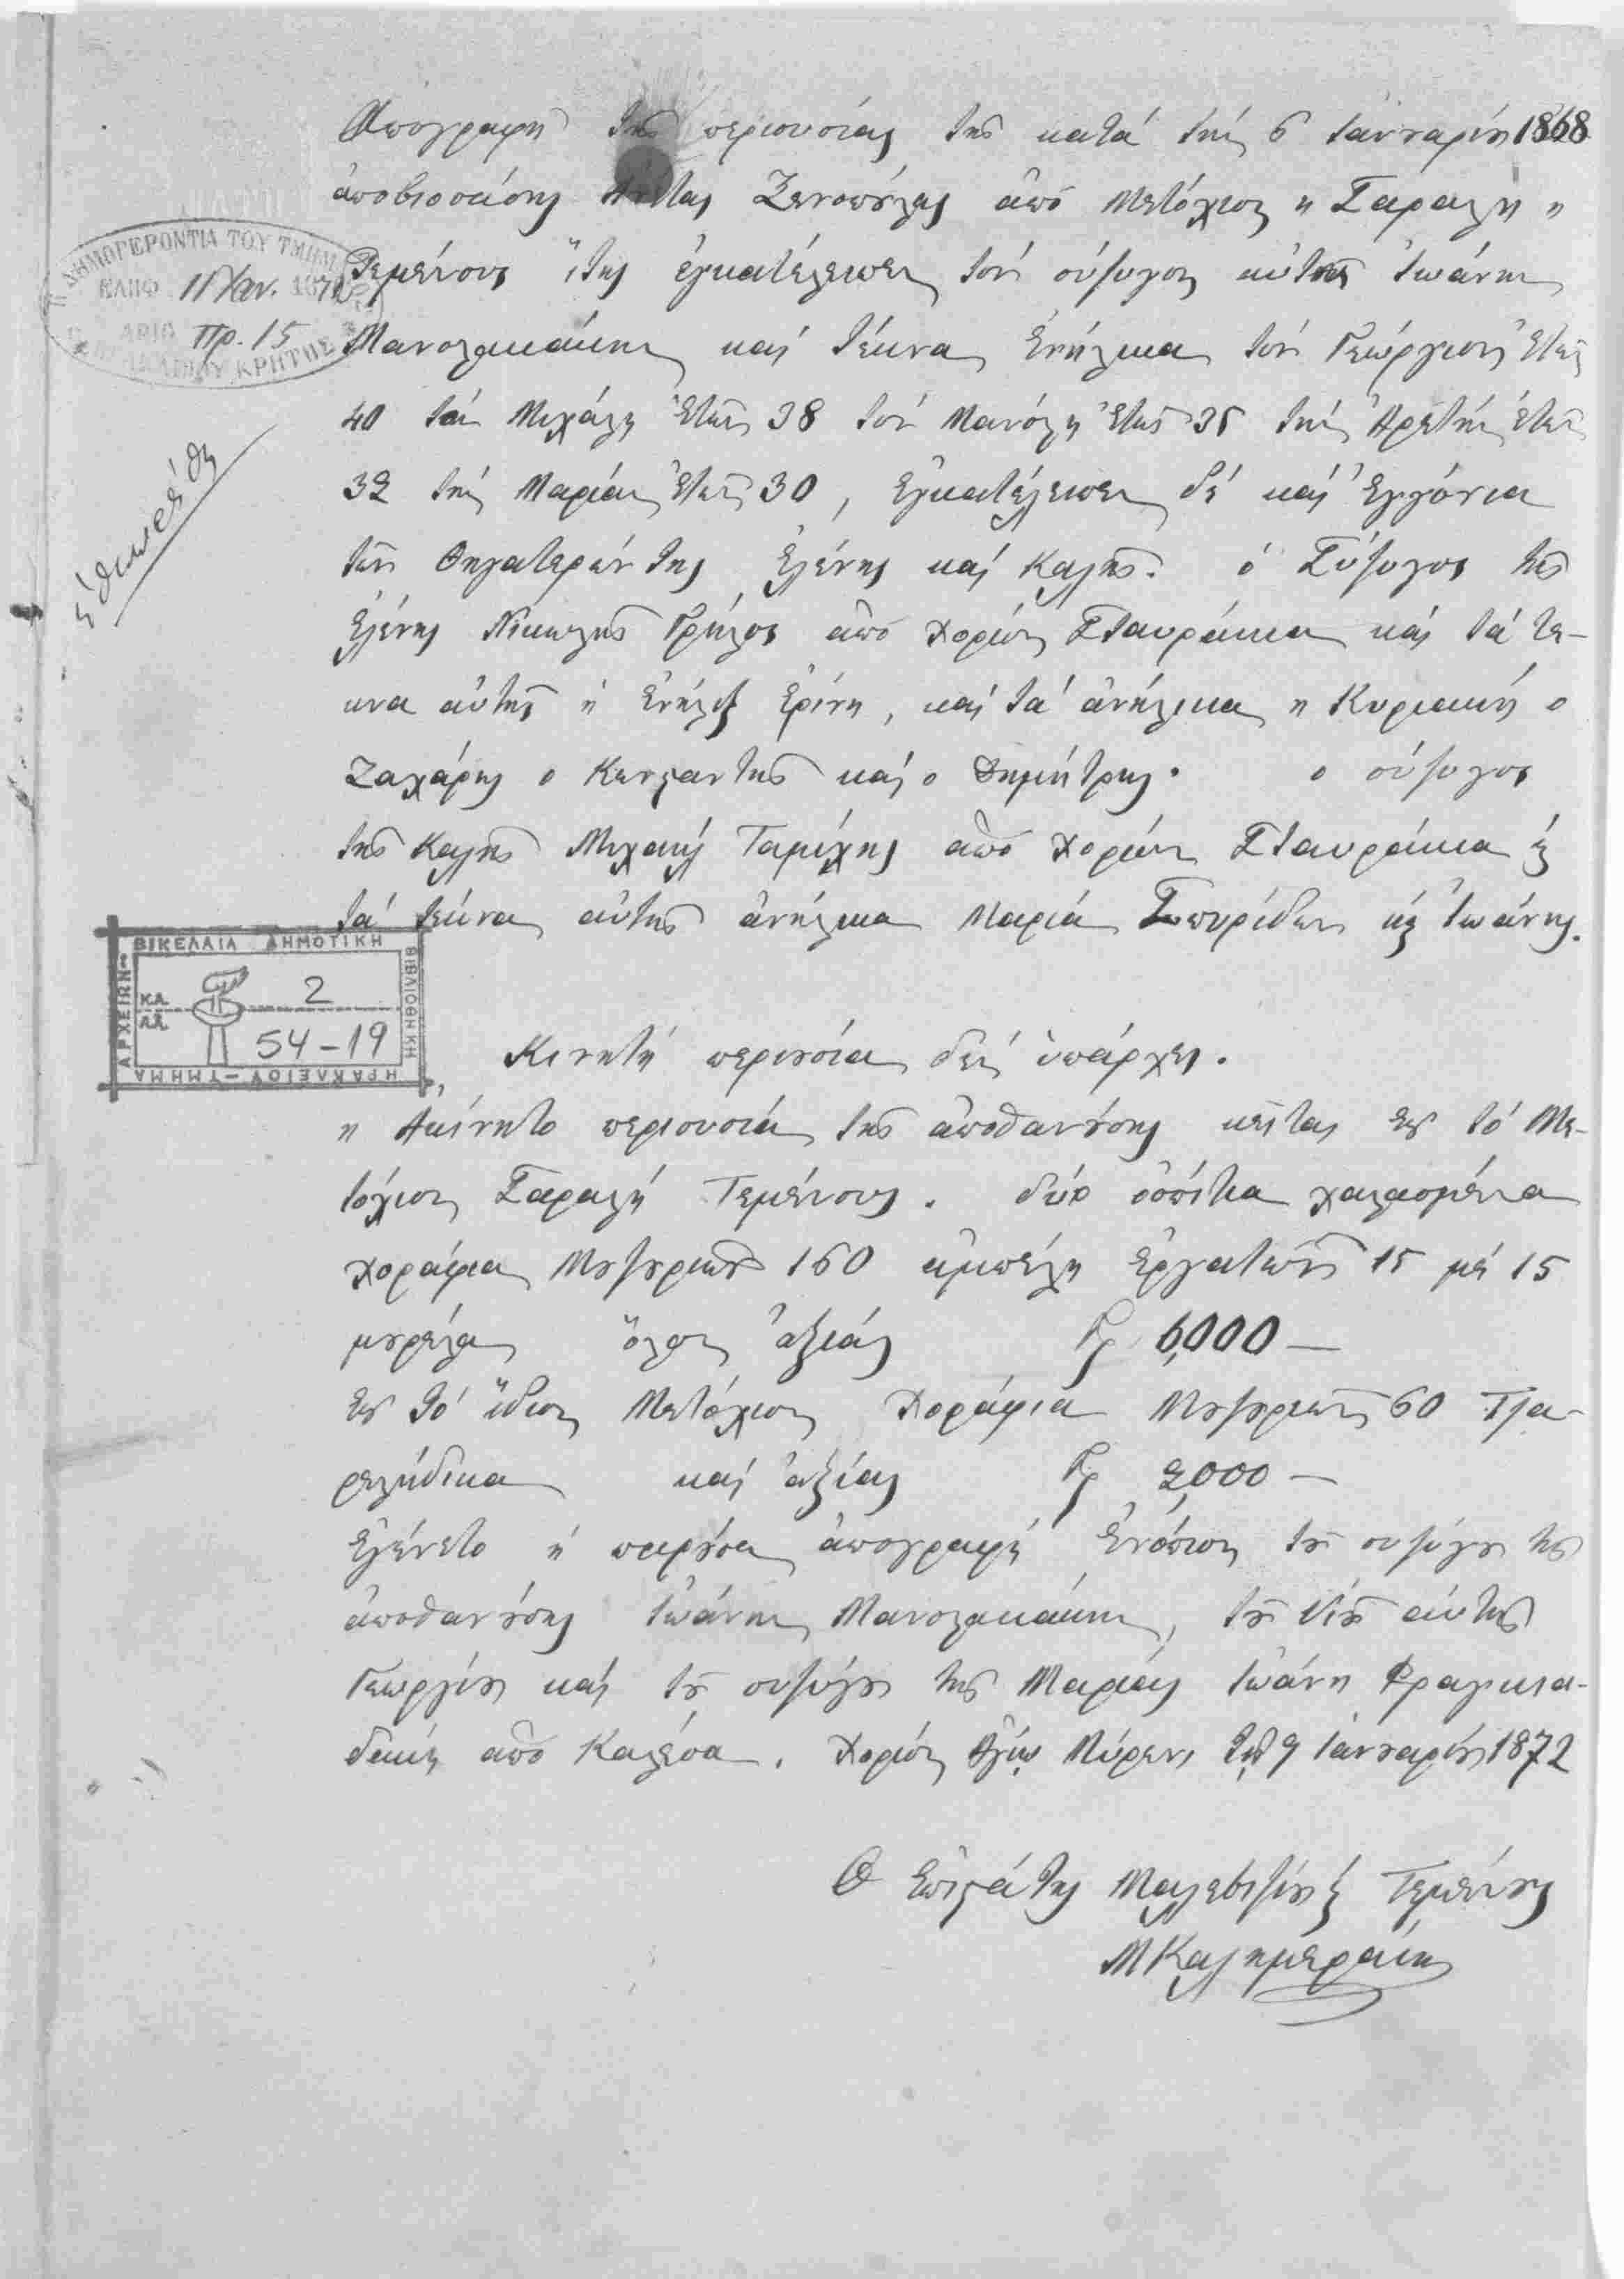 Απογραφή της περιουσίας της κατά την 6 Ιανουαρίου 1868
αποβιοσάσης Ξενοπούλας από Μετόχιον "Σαραλή"
Τεμένους ήτης εγκατέλειπεν τον σύζυγον αυτής Ιωάνην
Μανολακάκην και τέκνα Ενήλικα τον Γεώργιον Ετών
40 τον Μιχάλη Ετών 38 τον Μανόλη Ετών 35 την Αρετήν Ετών
32 την Μαρίαν Ετών 30, Εγκατέλειπεν δε και Εγγόνια
των Θηγατερών της Ελένης και Καλής. ο Σύζυγος της
Ελένης Νικολής Γρύλος από Χορίον Σταυράκια και τα τε-
κνα αυτής η Ενήλιξ Ερίνη, και τα ανήλικα η Κυριακή ο
Ζαχάρης ο Κωνσαντής και ο Δημήτρης. ο σύζυγος
της Καλής Μιχαήλ Ταμίχης από Χορίον Σταυράκια κ
τα τέκνα αυτής ανήλικα Μαρία Σπυρίδων κ Ιωάνης.
Κινητή περιουσία δεν υπάρχει.
η Ακίνητο περιουσία της αποθανούσης κείται εις το Με-
τόχιον Σαραλή Τεμένους. δύο οσπίτια χαλασμένα
χοράφια Μουζουριών 160 αμπέλη εργατών 15 με 15
μουρέλα όλον αξίας Γρ 6,000 —
εις το ίδιον Μετόχιον Χοράφια Μουζουριών 60 Τζα-
ρελήδικα και αξίας Γρ 2,000 —
Εγένετο η παρούσα απογραφή Ενόπιον του συζύγου της
αποθανούσης Ιωάνην Μανολακάκην, του Υιού αυτής
Γεωργίου και του συζύγου της Μαρίας Ιωάνη Φραγκια-
δάκη από Καλέσα. Χορίον Αγίω Μύρων τη 9 Ιανουαρίου 1872
Ο Επιστάτης Μαλεβιζίου κ Τεμένους
Μ Καλημεράκης
Η ΔΗΜΟΓΕΡΟΝΤΙΑ ΤΟΥ ΤΜΗΜ
ΕΛΗΦ 11 Ιαν. 1872
ΑΡΙΘ Πρ. 15
ΚΡΗΤΗΣ
εθεωρήθη
ΒΙΚΕΛΑΙΑ ΔΗΜΟΤΙΚΗ
ΒΙΒΛΙΟΘΗΚΗ
ΗΡΑΚΛΕΙΟΥ-ΤΜΗΜΑ
ΑΡΧΕΙΩΝ
2
54-19